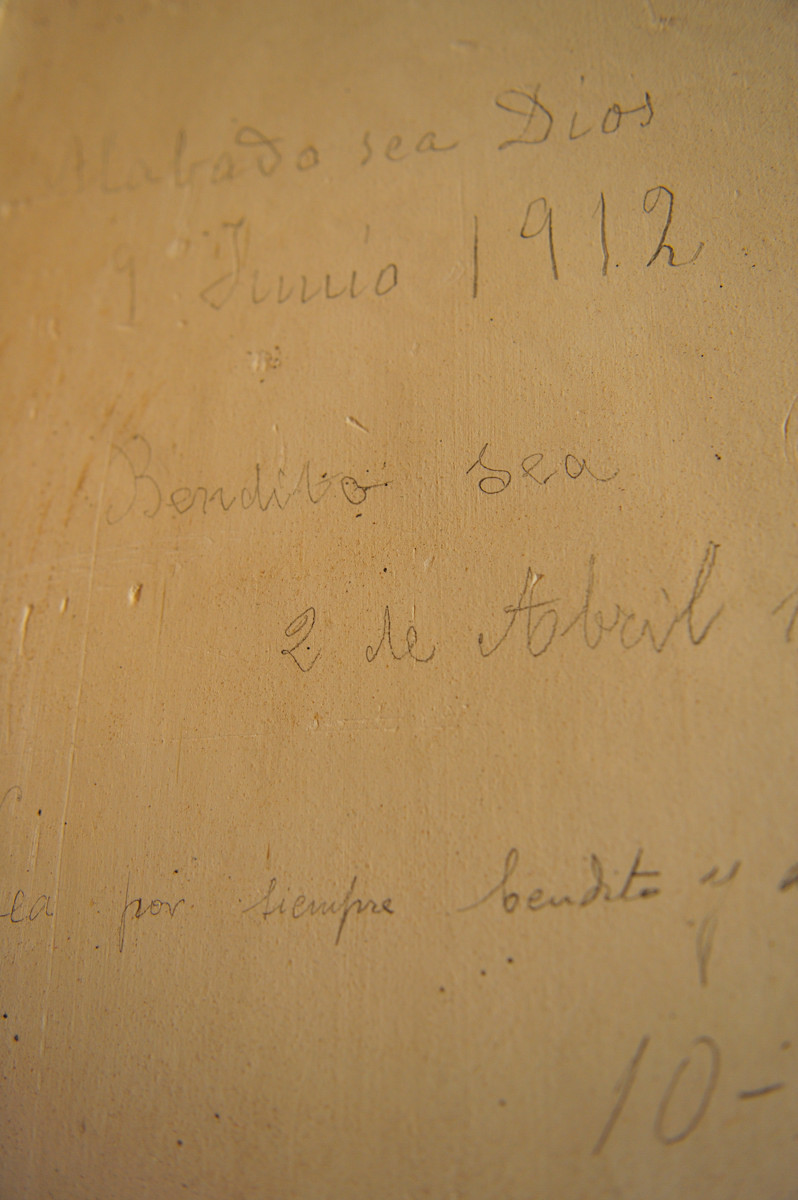 Alabado sea Dios
9 Junio 1912
Bendito sea
2 de Abril 1
ea por siempre bendito y
10-